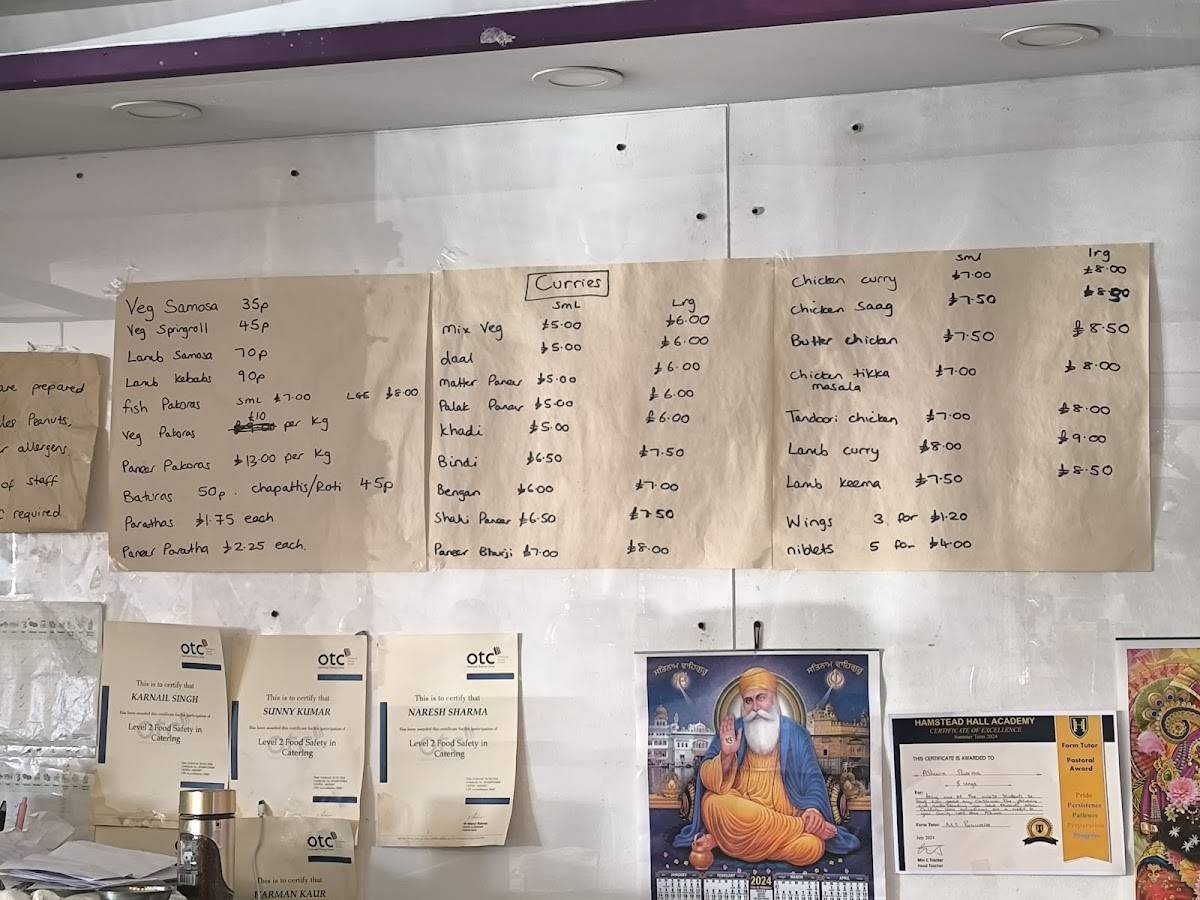 are prepared
Peanuts,
allergens
of staff
required
Veg Samosa 35p
Veg Springroll 45p
Lamb Samosa 70p
Lamb Kebabs 90p
fish Pakoras SML £7.00 LGE £8.00
Veg Pakoras £10 per Kg
Paneer Pakoras £13.00 per Kg
Baturas 50p. chapattis/Roti 45p
Parathas £1.75 each
Paneer Paratha £2.25 each.
Curries
SmL Lrg
Mix Veg £5.00 £6.00
daal £5.00 £6.00
Matter Paneer £5.00 £6.00
Palak Paneer £5.00 £6.00
Khadi £5.00 £6.00
Bindi £6.50 £7.50
Bengan £6.00 £7.00
Shahi Paneer £6.50 £7.50
Paneer Bhurji £7.00 £8.00
sml lrg
Chicken curry £7.00 £8.00
Chicken Saag £7.50 £8.50
Butter chicken £7.50 £8.50
Chicken tikka masala £7.00 £8.00
Tandoori chicken £7.00 £8.00
Lamb curry £8.00 £9.00
Lamb Keema £7.50 £8.50
Wings 3 for £1.20
niblets 5 for £4.00
otc
This is to certify that
KARNAIL SINGH
Has been awarded this certificate for the participation of
Level 2 Food Safety in
Catering
otc
This is to certify that
SUNNY KUMAR
Has been awarded this certificate for the participation of
Level 2 Food Safety in
Catering
otc
This is to certify that
NARESH SHARMA
Has been awarded this certificate for the participation of
Level 2 Food Safety in
Catering
otc
This is to certify that
HARMAN KAUR
ਸਤਿਨਾਮ ਵਾਹਿਗੁਰੂ ਸਤਿਨਾਮ ਵਾਹਿਗੁਰੂ
JANUARY FEBRUARY 2024 MARCH APRIL
HAMSTEAD HALL ACADEMY
CERTIFICATE OF EXCELLENCE
Summer Term 2024
THIS CERTIFICATE IS AWARDED TO
For:
Form Tutor:
July 2024
Head Teacher
H
Form Tutor
Pastoral
Award
Pride
Persistence
Patience
Preparation
Progress